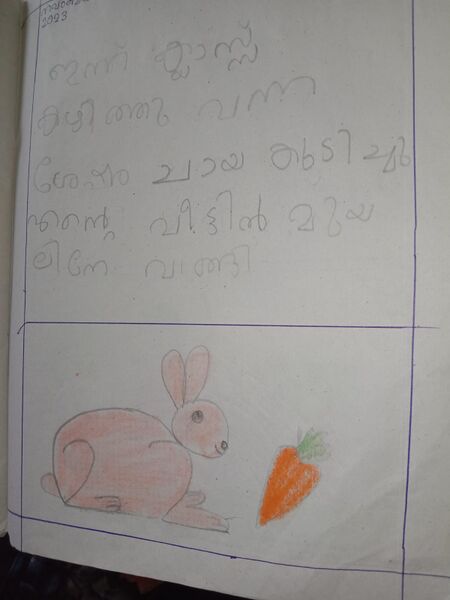 നവംബർ
2023
ഇന്ന് ക്ലാസ്സ്
കഴിഞ്ഞു വന്ന
ശേഷം ചായ കുടിച്ചു
എന്റെ വീട്ടിൽ മുയ
ലിനേ വാങ്ങി